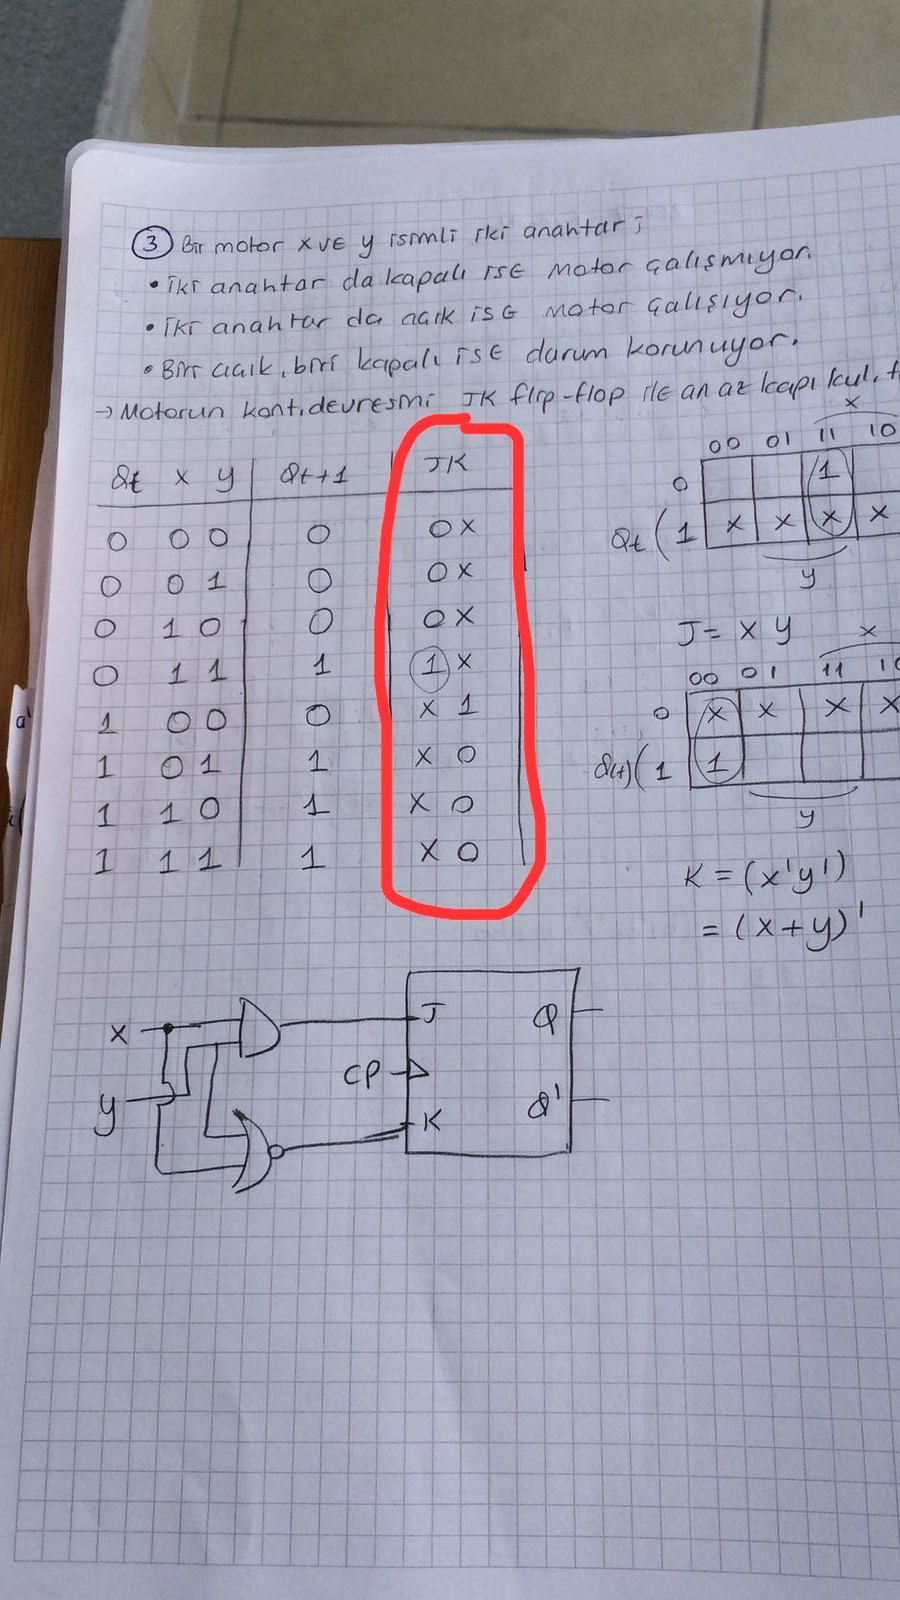 3 Bir motor x ve y isimli iki anahtar;
• iki anahtar da kapalı ise motor çalışmıyor.
• iki anahtar da açık ise motor çalışıyor.
• Biri açık, biri kapalı ise durum korunuyor.
→ Motorun kont. devresini JK flip-flop ile en az kapı kul. t
Qt x y Qt+1 JK
0 0 0 0 0 x
0 0 1 0 0 x
0 1 0 0 0 x
0 1 1 1 1 x
1 0 0 0 x 1
1 0 1 1 x 0
1 1 0 1 x 0
1 1 1 1 x 0
x
00 01 11 10
0 1
Qt ( 1 x x x x
y
J = x y
x
00 01 11 10
0 x x x x
Q(t) ( 1 1
y
K = (x'y')
= (x+y)'
x
y
J Q
CP
K Q'